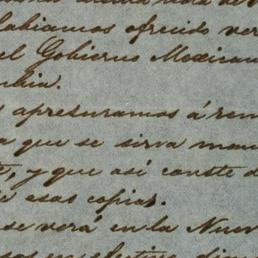 habiamos ofrecido ver
el Gobierno Mexican
mbia.
apresuramos á rem
a que se sirva man
te, y que así conste d
e esas copias.
se verá en la Nuev